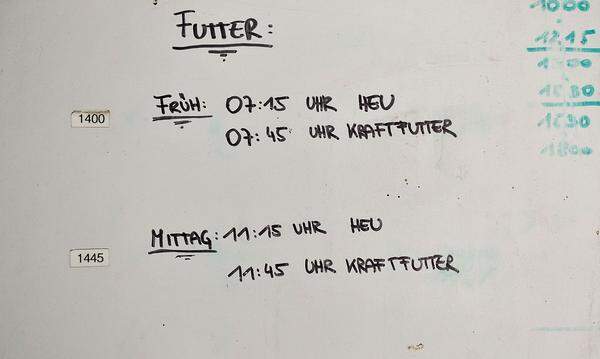 FUTTER:
FRÜH: 07:15 UHR HEU
07:45 UHR KRAFTFUTTER
1400
MITTAG: 11:15 UHR HEU
11:45 UHR KRAFTFUTTER
1445
1000
1215
1630
1800